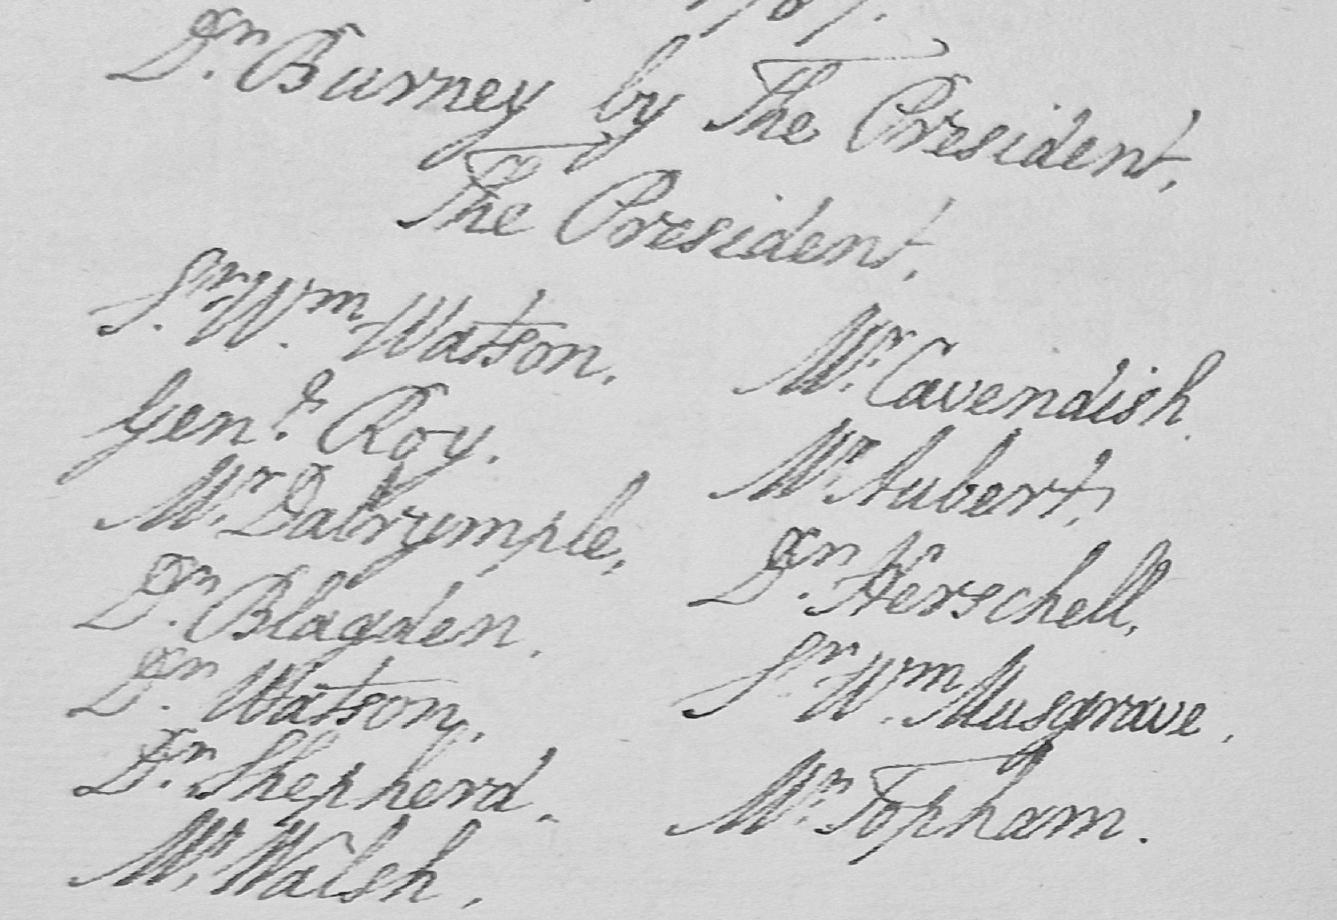 Dr. Burney by The President,
The President,
Sr. Wm. Watson.
Genl. Roy.
Mr. Dalrymple,
Dr. Blagden.
Dr. Watson,
Dr. Shepherd.
Mr. Walsh.
Mr. Cavendish.
Mr. Aubert,
Dr. Herschell,
Sr. Wm. Musgrave.
Mr. Topham.